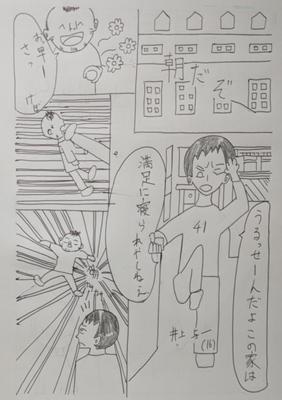 朝だぞ
うるっせーんだよこの家は
満足に寝られやしねえ
41
井上与一
(16)
お早
さっ